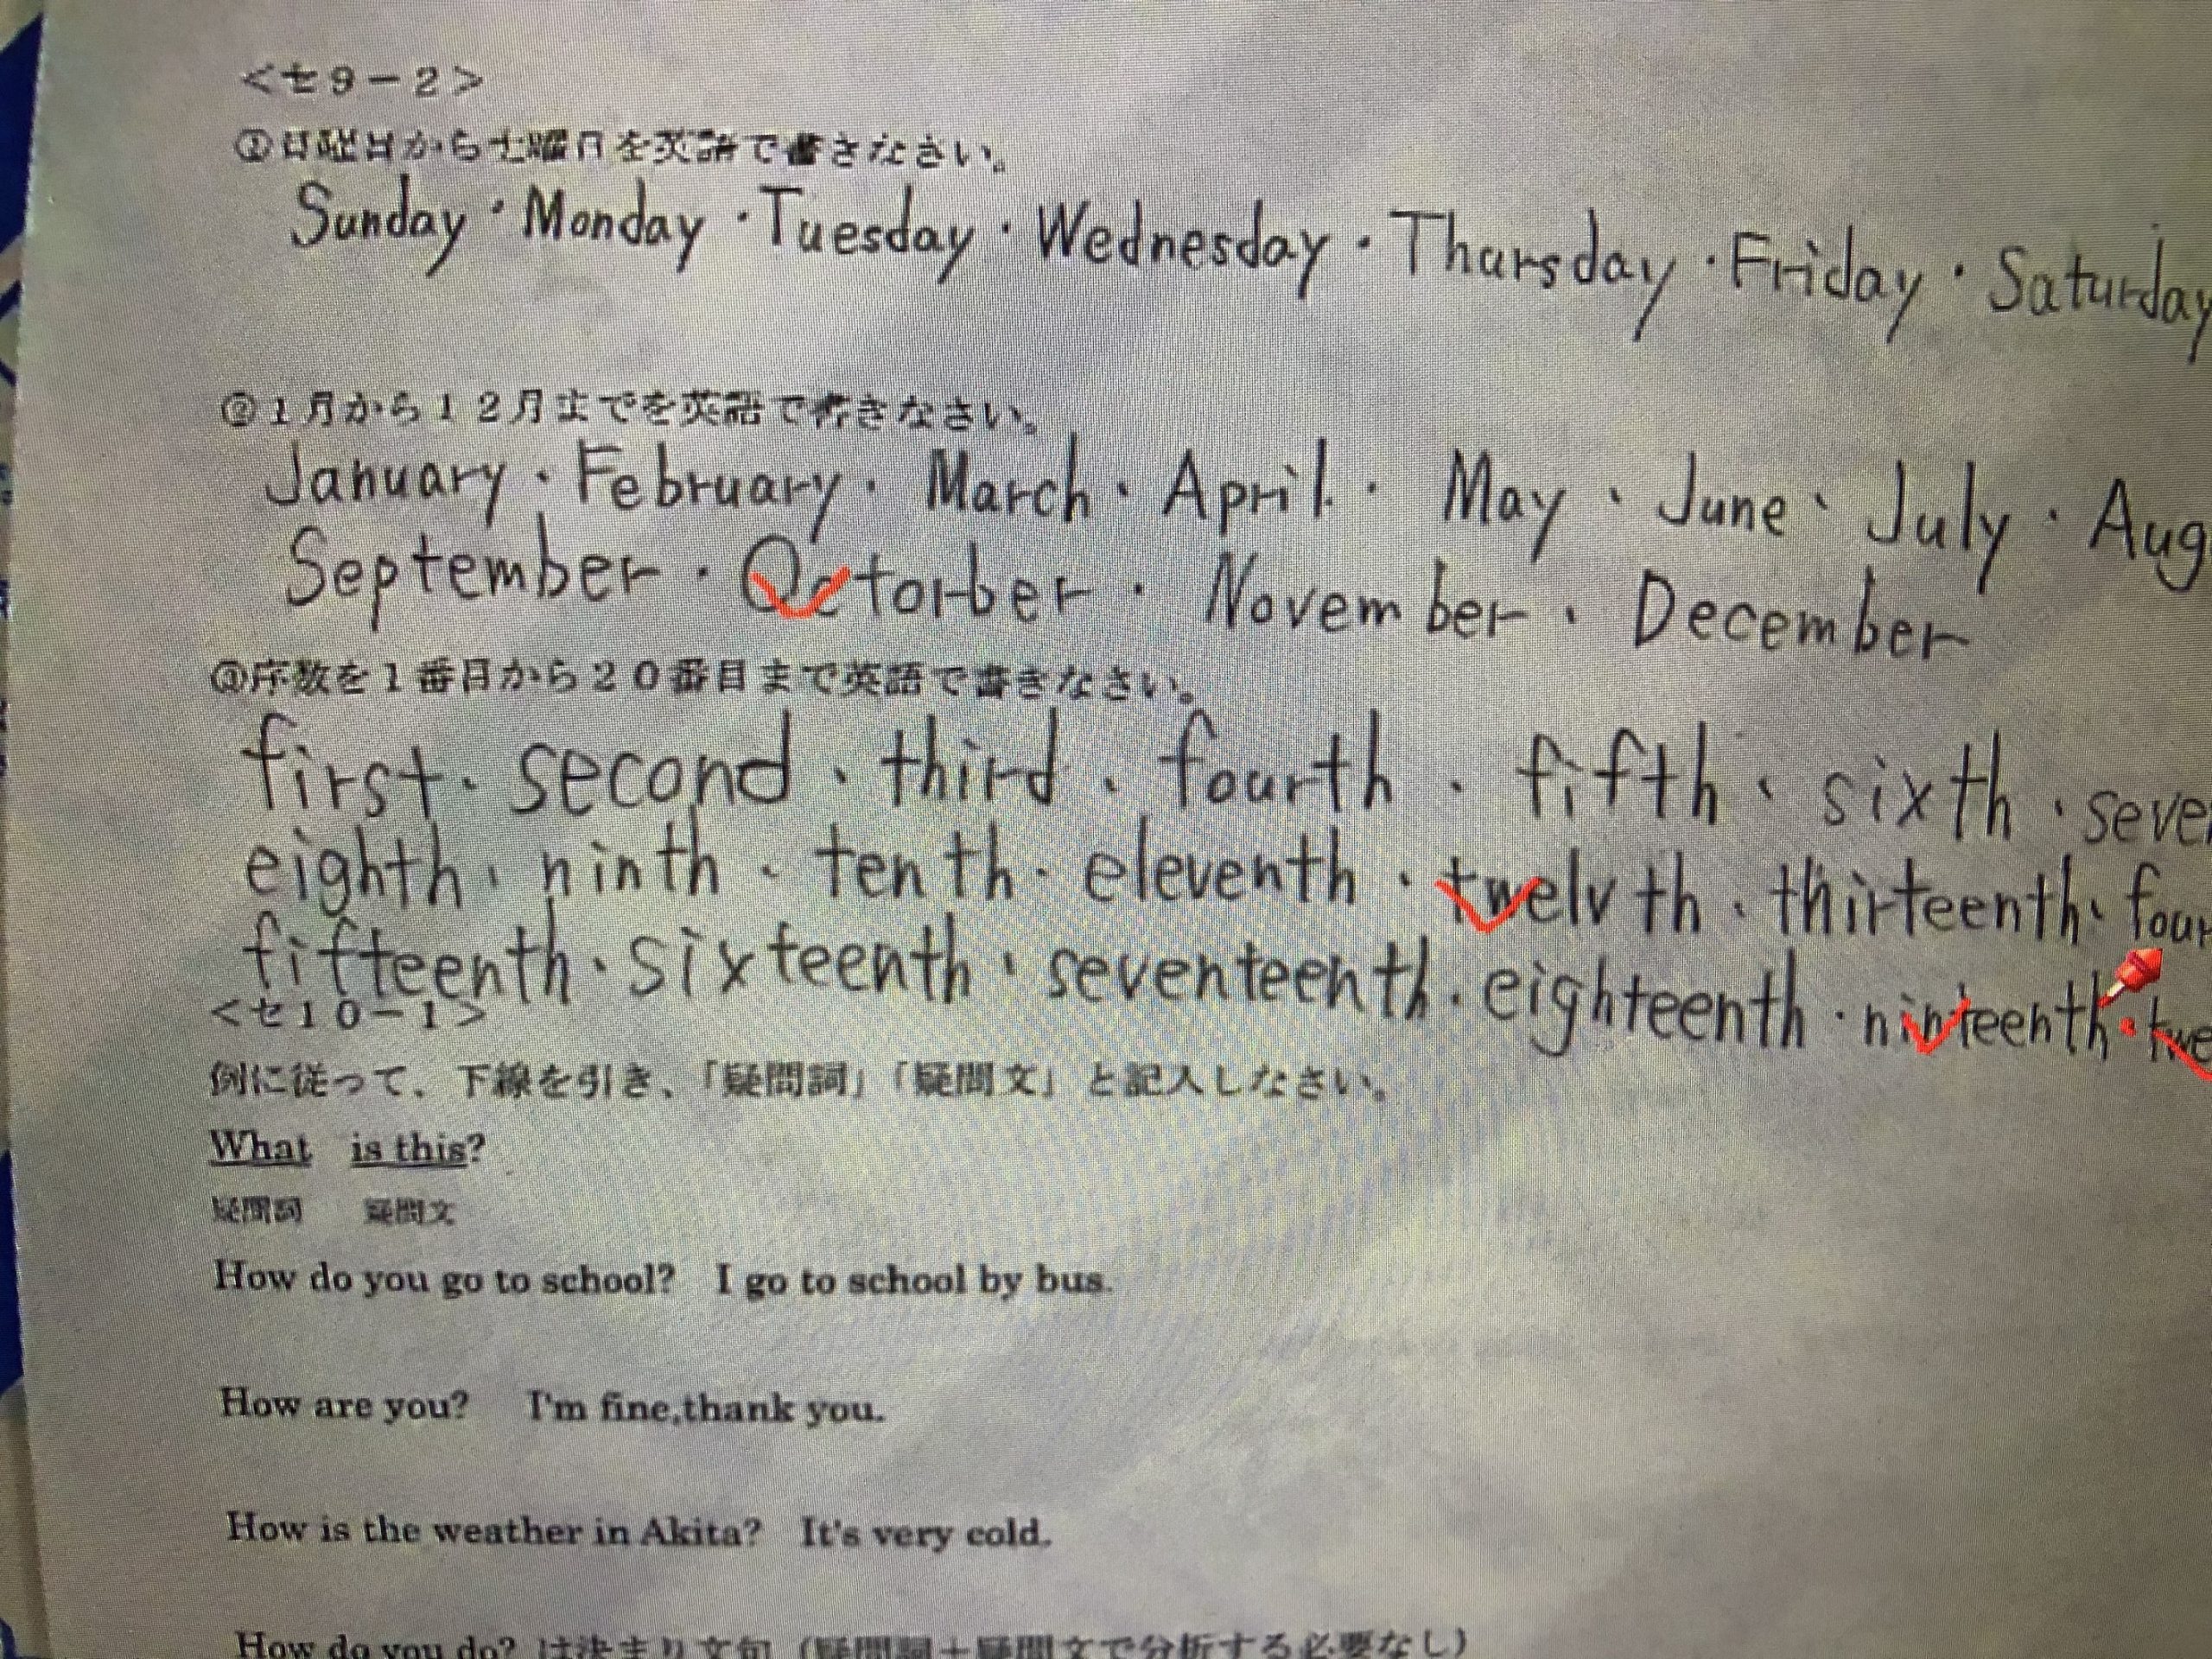 <セ9-2>
①日曜日から土曜日を英語で書きなさい。
Sunday・Monday・Tuesday・Wednesday・Thursday・Friday・Saturday
②1月から12月までを英語で書きなさい。
January・February・March・April・May・June・July・Aug
September・Octorber・November・December
③序数を1番目から20番目まで英語で書きなさい。
first・second・third・fourth・fifth・sixth・seve
eighth・ninth・tenth・eleventh・twelvth・thirteenth・four
fifteenth・sixteenth・seventeenth・eighteenth・ninteenth・twe
<セ10-1>
例に従って、下線を引き、「疑問詞」「疑問文」と記入しなさい。
What is this?
疑問詞 疑問文
How do you go to school? I go to school by bus.
How are you? I'm fine,thank you.
How is the weather in Akita? It's very cold.
How do you do? は決まり文句（疑問詞＋疑問文で分析する必要なし）